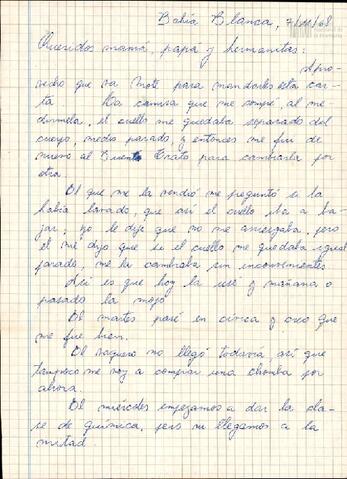 Bahía Blanca, 7/11/68
Queridos mamá, papá y hermanitas:
Apro-
vecho que va Mote para mandarles esta car-
ta La camisa que me compré, al me
dírmela, el cuello me quedaba separado del
cuerpo, medio parado, y entonces me fui de
nuevo al Buen Trato para cambiarla por
otra.
El que me la vendió me preguntó si la
había lavado, que así el cuello iba a ba-
jar; yo le dije que no me arriesgaba, pero
él me dijo que si el cuello me quedaba igual
parado, me la cambiaba sin inconvenientes
Así es que hoy la usé y mañana o
pasado la mojo
El martes pasé en cívica y creo que
me fue bien.
El vaquero no llegó todavía, así que
tampoco me voy a comprar una chomba por
ahora.
El miércoles empezamos a dar la cla-
se de química, pero ni llegamos a la
mitad.